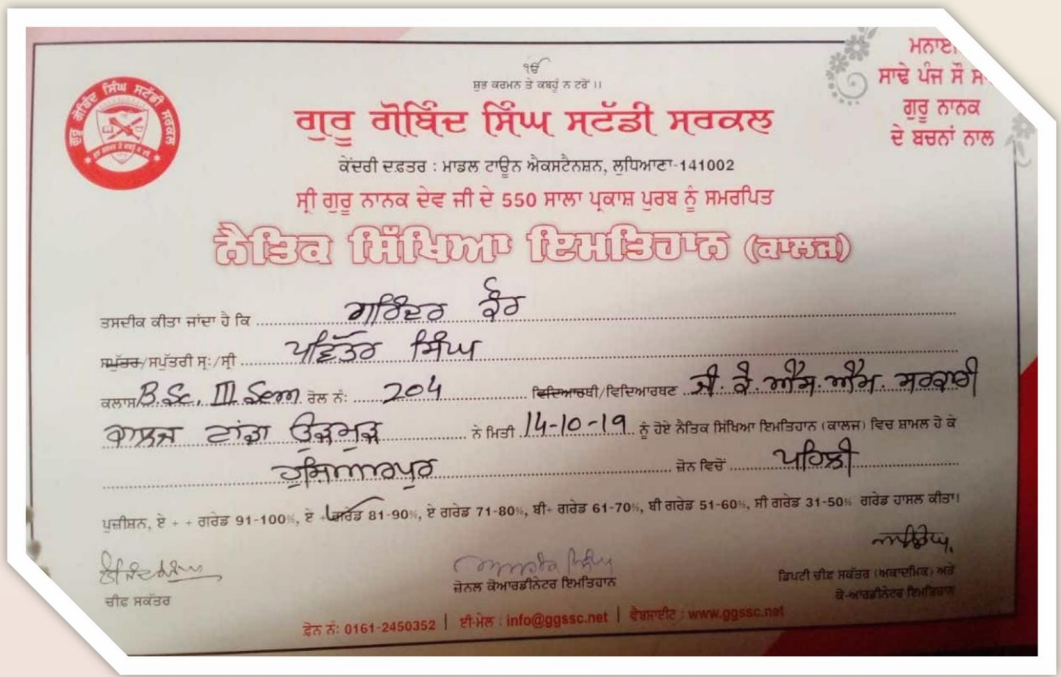 ੴ
ਸ਼ੁਭ ਕਰਮਨ ਤੇ ਕਬਹੂੰ ਨ ਟਰੋਂ ।।
ਗੁਰੂ ਗੋਬਿੰਦ ਸਿੰਘ ਸਟੱਡੀ ਸਰਕਲ
ਗੁਰੂ ਗੋਬਿੰਦ ਸਿੰਘ ਸਟੱਡੀ ਸਰਕਲ
ਸਾਢੇ ਪੰਜ ਸੌ
ਗੁਰੂ ਨਾਨਕ
ਦੇ ਬਚਨਾਂ ਨਾਲ
ਕੇਂਦਰੀ ਦਫ਼ਤਰ : ਮਾਡਲ ਟਾਊਨ ਐਕਸਟੈਨਸ਼ਨ, ਲੁਧਿਆਣਾ-141002
ਸ੍ਰੀ ਗੁਰੂ ਨਾਨਕ ਦੇਵ ਜੀ ਦੇ 550 ਸਾਲਾ ਪ੍ਰਕਾਸ਼ ਪੁਰਬ ਨੂੰ ਸਮਰਪਿਤ
ਨੈਤਿਕ ਸਿੱਖਿਆ ਇਮਤਿਹਾਨ (ਕਾਲਜ)
ਤਸਦੀਕ ਕੀਤਾ ਜਾਂਦਾ ਹੈ ਕਿ ਗੁਰਿੰਦਰ ਕੌਰ
ਸਪੁੱਤਰ/ਸਪੁੱਤਰੀ ਸ੍ਰ:/ਸ੍ਰੀ ਪਵਿੱਤਰ ਸਿੰਘ
ਕਲਾਸ B.Sc. III Sem ਰੋਲ ਨੰ: 204 ਵਿਦਿਆਰਥੀ/ਵਿਦਿਆਰਥਣ ਜੀ.ਕੇ.ਐਸ.ਐਮ. ਸਰਕਾਰੀ
ਕਾਲਜ ਟਾਂਡਾ ਉੜਮੁੜ ਨੇ ਮਿਤੀ 14-10-19 ਨੂੰ ਹੋਏ ਨੈਤਿਕ ਸਿੱਖਿਆ ਇਮਤਿਹਾਨ (ਕਾਲਜ) ਵਿਚ ਸ਼ਾਮਲ ਹੋ ਕੇ
ਹੁਸ਼ਿਆਰਪੁਰ ਜ਼ੋਨ ਵਿਚੋਂ ਪਹਿਲੀ
ਪੁਜ਼ੀਸ਼ਨ, ਏ + + ਗਰੇਡ 91-100%, ਏ + ਗਰੇਡ 81-90%, ਏ ਗਰੇਡ 71-80%, ਬੀ+ ਗਰੇਡ 61-70%, ਬੀ ਗਰੇਡ 51-60%, ਸੀ ਗਰੇਡ 31-50% ਗਰੇਡ ਹਾਸਲ ਕੀਤਾ।
ਚੀਫ ਸਕੱਤਰ
ਜ਼ੋਨਲ ਕੋਆਰਡੀਨੇਟਰ ਇਮਤਿਹਾਨ
ਡਿਪਟੀ ਚੀਫ ਸਕੱਤਰ (ਅਕਾਦਮਿਕ) ਅਤੇ
ਕੋ-ਆਰਡੀਨੇਟਰ ਇਮਤਿਹਾਨ
ਫ਼ੋਨ ਨੰ: 0161-2450352 | ਈ-ਮੇਲ : info@ggssc.net | ਵੈਬਸਾਈਟ : www.ggssc.net